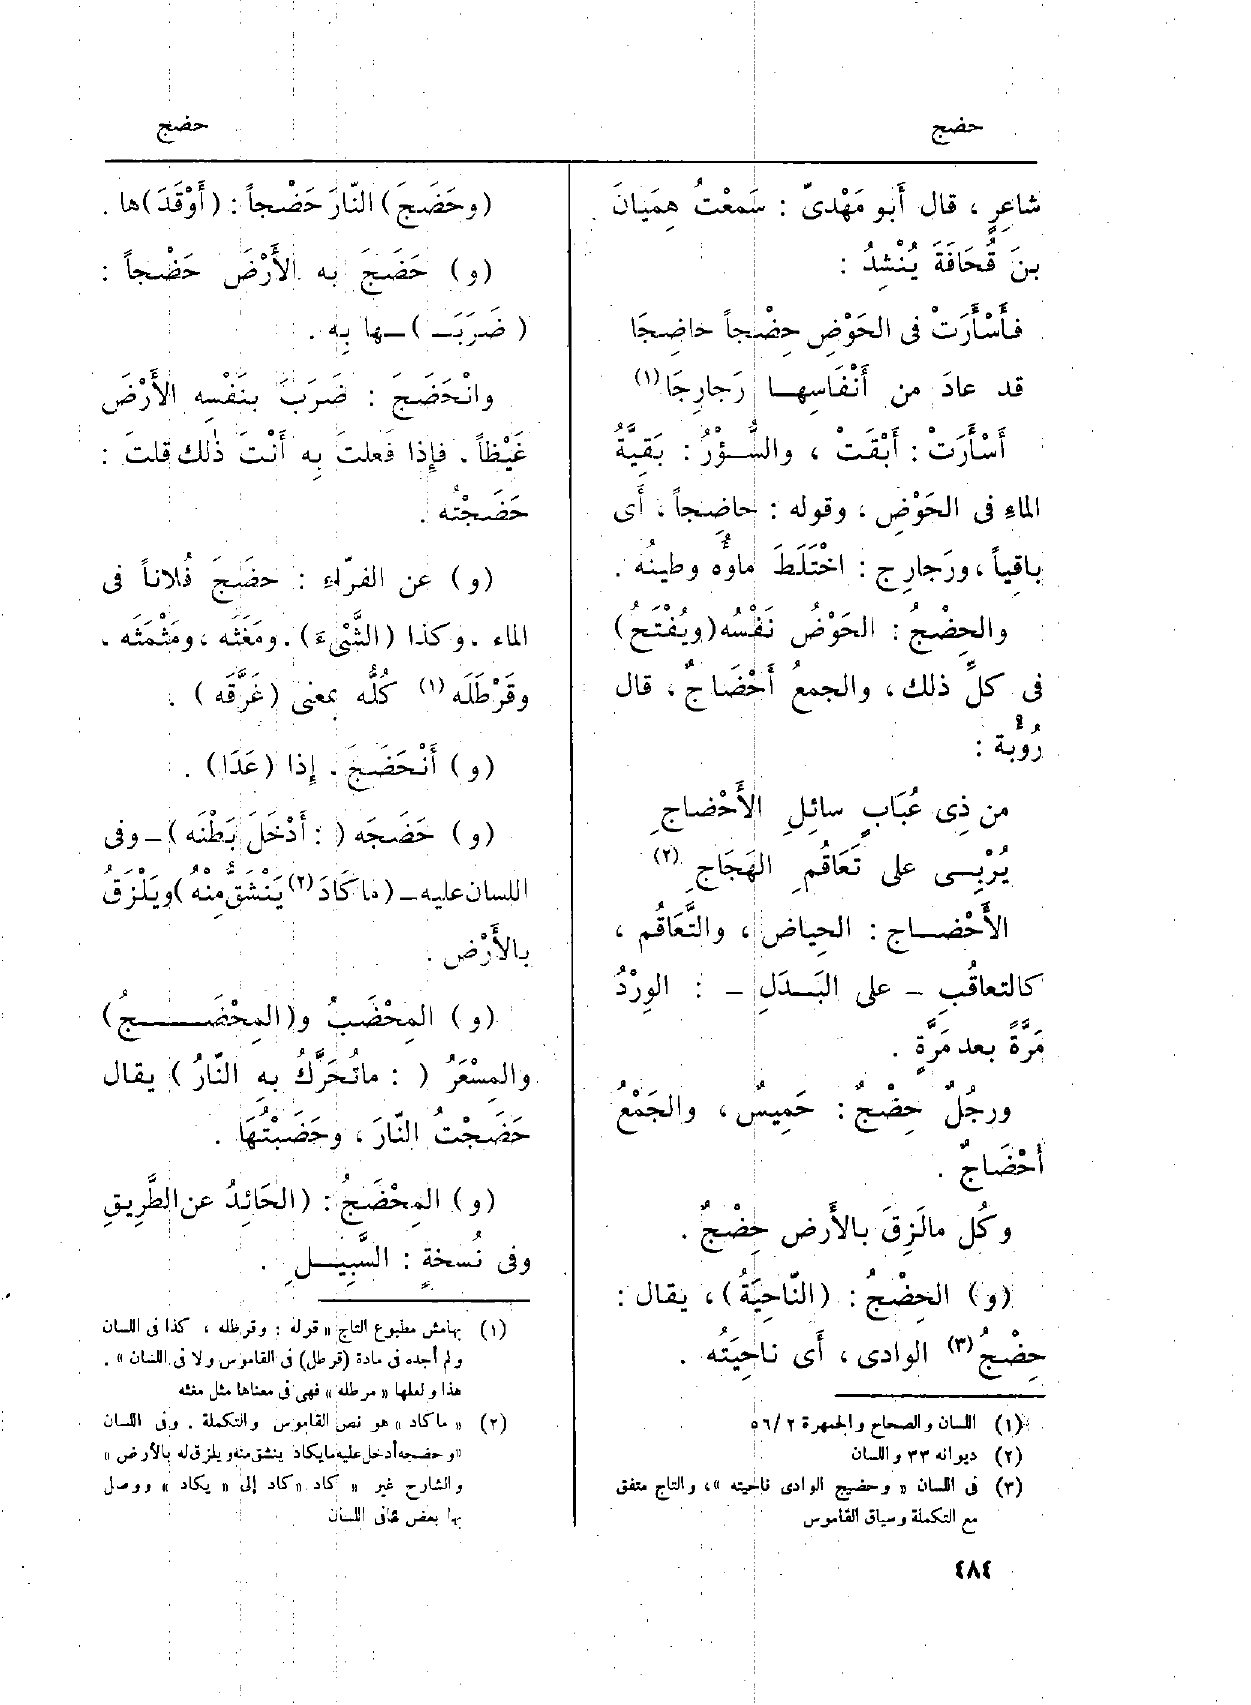 حضج
حضج
شاعِرٍ ، قال أَبو مَهْدىّ : سَمعْتُ هِمْيَانَ
بنَ قُحَافَةَ يُنْشِدُ :
فأَسْأَرَتْ فى الحَوْضِ حِضْجاً حاضِجَا
قد عادَ من أَنْفَاسِها رَجارِجَا(١)
أَسْأَرَتْ : أَبْقَتْ ، والسُّؤْرُ : بَقِيَّةُ
الماءِ فى الحَوْضِ ، وقوله : حاضِجاً ، أَى
باقياً ، ورَجارِج : اخْتَلَطَ ماؤُه وطِينُه .
والحِضْجُ : الحَوْضُ نَفْسُه (ويُفْتَح)
فى كلِّ ذلك ، والجمعُ أَحْضَاجٌ ، قال
رُؤبة :
من ذِى عُبَابٍ سائِلِ الأَحْضاجِ
يُرْبِى على تَعَاقُمِ الهَجَاجِ (٢)
الأَحْضاج : الحِياض ، والتَّعَاقُم ،
كالتعاقُبِ – على البَدَلِ – : الوِرْدُ
مَرَّةً بعد مَرَّةٍ .
ورجُلٌ حِضْجٌ : خَمِيسٌ ، والجَمْعُ
أَحْضَاجٌ .
وكُل مالَزِقَ بالأَرض حِضْجٌ .
(و) الحِضْجُ : (النّاحِيَةُ) ، يقال :
حِضْجُ(٣) الوادى ، أَى ناحِيَتُه .
(١) اللسان والصحاح والجمهرة ٥٦/٢
(٢) ديوانه ٣٣ واللسان
(٣) فى اللسان « وحضيج الوادى ناحيته » ، والتاج متفق
مع التكملة وسياق القاموس
(وحَضَجَ) النّارَ حَضْجاً : (أَوْقَدَ)ها .
(و) حَضَجَ به الأَرْضَ حَضْجاً :
( ضَرَبَـ ) ـها بِه .
وانْحَضَجَ : ضَرَبَ بنَفْسِه الأَرْضَ
غَيْظاً . فإِذا فَعلتَ بِه أَنْتَ ذٰلك قلتَ :
حَضَجْتُه .
(و) عن الفرّاءِ : حضَجَ فُلاناً فى
الماء . وكذا (الشَّىْءَ) . ومَغَثَه ، ومَثْمَثَه .
وقَرْطَلَه (١) كُلُّه بمعنى (غَرَّقَه ) .
(و) أَنْحَضَجَ . إذا (عَدَا) .
(و) حَضَجَه ( : أَدْخَلَ بَطْنَه ) – وفى
اللسان عليه – (ما كَادَ(٢) يَنْشَقُّ مِنْهُ) ويَلْزَقُ
بالأَرْض .
(و) المِحْضَبُ و(المِحْضَجُ)
والمِسْعَرُ ( : ماتُحَرَّكُ بِهِ النّارُ ) يقال
حَضَجْتُ النّارَ ، وحَضَبْتُهَا .
(و) المِحْضَجُ : (الحَائِدُ عن الطَّرِيقِ
وفى نُسخةٍ : السَّبِيلِ .
(١) بهامش مطبوع التاج « قوله : وقرطله ، كذا فى اللسان
ولم أجده فى مادة (قرطل) فى القاموس ولا فى اللسان » .
هذا ولعلها « مرطله » فهى فى معناها مثل مغثه
(٢) « ما كاد » هو نص القاموس والتكملة . وفى اللسان
« وحضجه أدخل عليه مايكاد ينشق منه ويلزق له بالأرض »
والشارح غير « كاد » كاد إلى « يكاد » ووصل
بها بعض مافى اللسان
٤٨٤